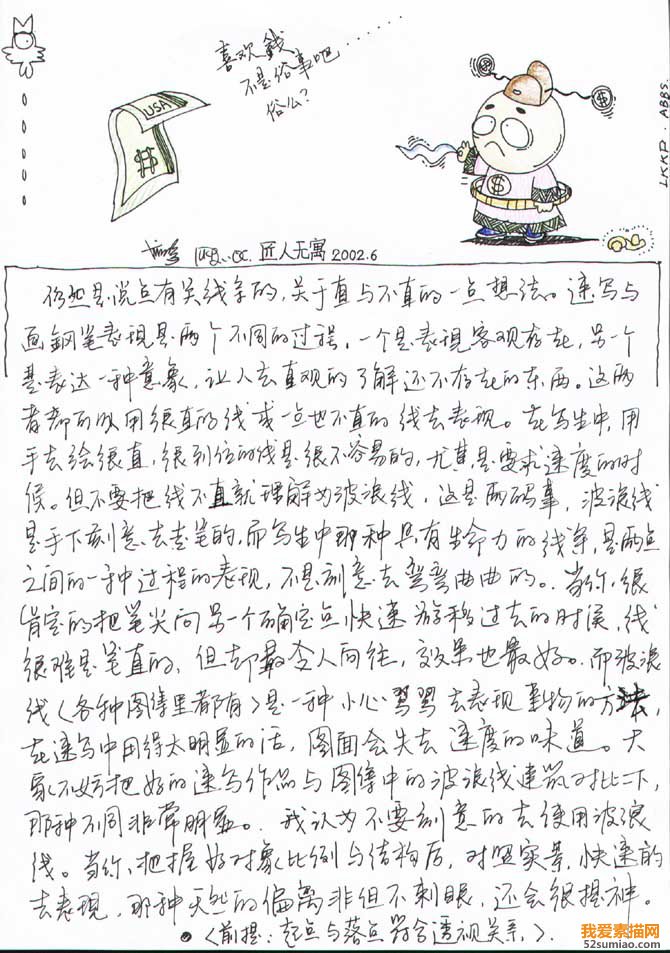 喜欢錢
不是俗事吧……
俗么？
USA
$
$
$
$
LKKP. ABBS.
匠人无寓 2002.6
仍然是说点有关线条的，关于直与不直的一点想法。速写与
画钢笔表现是两个不同的过程，一个是表现客观存在，另一个
是表达一种意象，让人去直观的了解还不存在的东西。这两
者都可以用很直的线或一点也不直的线去表现。在写生中，用
手去绘很直，很到位的线是很不容易的，尤其是要求速度的时
候。但不要把线不直就理解为波浪线，这是两码事，波浪线
是手下刻意去走笔的，而写生中那种具有生命力的线条，是两点
之间的一种过程的表现，不是刻意去弯弯曲曲的。当你，很
肯定的把笔尖向另一个确定点快速游移过去的时候，线
很难是笔直的，但却最令人向往，效果也最好。而波浪
线〈各种图集里都有〉是一种小心翼翼去表现事物的方法，
在速写中用得太明显的话，图面会失去速度的味道。大
家不妨把好的速写作品与图集中的波浪线建筑对比一下，
那种不同非常明显。我认为不要刻意的去使用波浪
线。当你，把握好对象比例与结构后，对照实景，快速的
去表现，那种天然的偏离非但不刺眼，还会很提神。
〈前提：起点与落点符合透视关系，〉.
我爱素描网
52sumiao.com